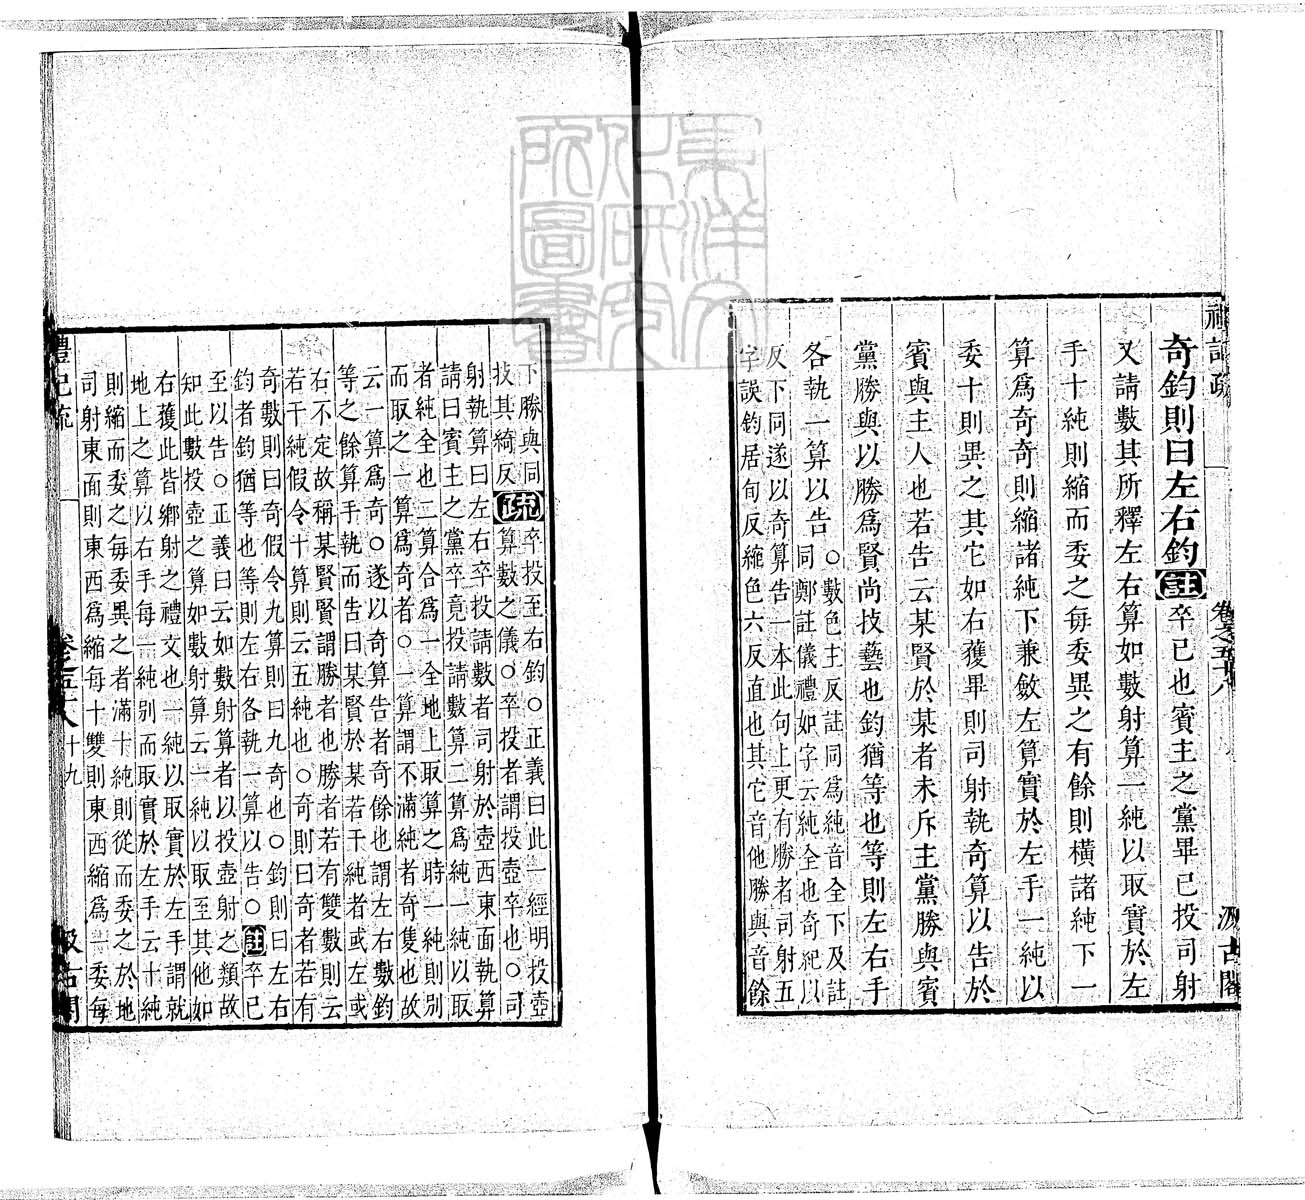 禮記疏 卷之五十八 汲古閣
奇鈞則曰左右鈞註卒已也賓主之黨畢已投司射
又請數其所釋左右算如數射算二純以取實於左
手十純則縮而委之每委異之有餘則橫諸純下一
算爲奇奇則縮諸純下兼斂左算實於左手一純以
委十則異之其它如右獲畢則司射執奇算以告於
賓與主人也若告云某賢於某者未斥主黨勝與賓
黨勝與以勝爲賢尚技藝也鈞猶等也等則左右手
各執一算以告
○數色主反註同爲純音全下及註
同鄭註儀禮如字云純全也奇紀以
反下同遂以奇算告一本此句上更有勝者司射五
字誤鈞居旬反縮色六反直也其它音他勝與音餘
下勝與同
技其綺反疏卒投至右鈞○正義曰此一經明投壺
算數之儀○卒投者謂投壺卒也○司
射執算曰左右卒投請數者司射於壺西東面執算
請曰賓主之黨卒竟投請數算二算爲純一純以取
者純全也二算合爲一全地上取算之時一純則別
而取之一算爲奇者○一算謂不滿純者奇隻也故
云一算爲奇○遂以奇算告者奇餘也謂左右數鈞
等之餘算手執而告曰某賢於某若干純者或左或
右不定故稱某賢賢謂勝者也勝者若有雙數則云
若干純假令十算則云五純也○奇則曰奇者若有
奇數則曰奇假令九算則曰九奇也○鈞則曰左右
鈞者鈞猶等也等則左右各執一算以告○註卒已
至以告○正義曰云如數射算者以投壺射之類故
知此數投壺之算如數射算云一純以取至其他如
右獲此皆鄉射之禮文也一純以取實於左手謂就
地上之算以右手每一純別而取實於左手云十純
則縮而委之每委異之者滿十純則從而委之於地
司射東面則東西爲縮每十雙則東西縮爲一委每
禮記疏 卷之五十八 十九 汲古閣
東洋文化研究所圖書